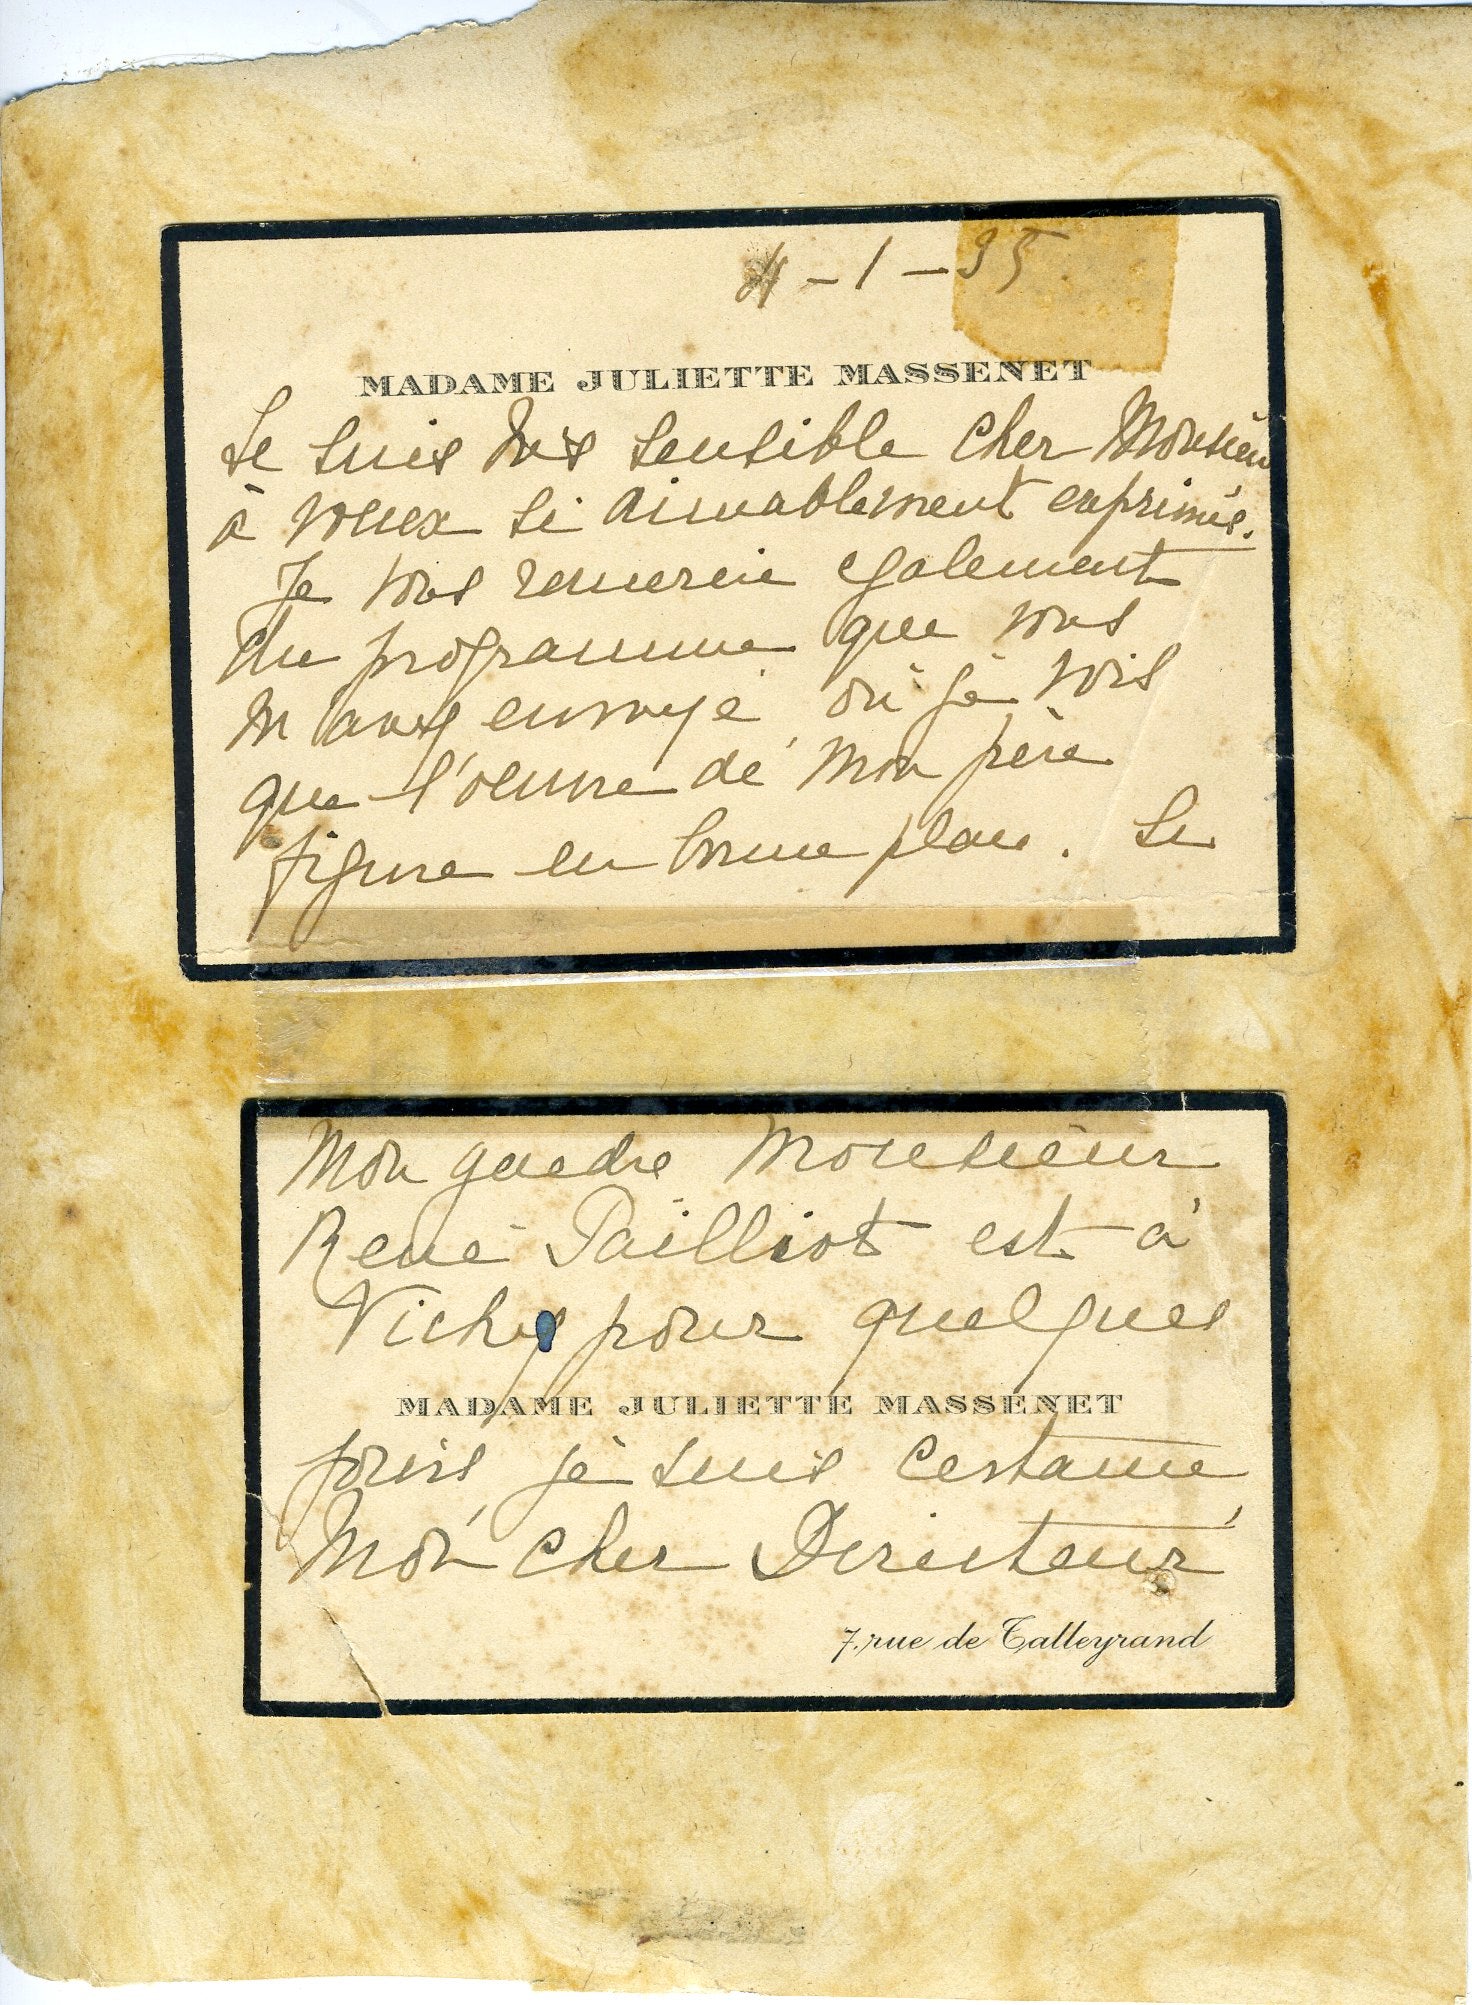 4-1-35
MADAME JULIETTE MASSENET
Je suis très sensible cher Monsieur
à voeux si aimablement exprimés.
Je vous remercie egalement
du programme que vous
m'avez envoyé, où je vois
que l'oeuvre de mon père
figure en bonne place. Si
Mon gendre Monsieur
René Pailliot est à
Vichy pour quelques
MADAME JULIETTE MASSENET
jours, je suis certaine,
Mon cher Directeur
7, rue de Talleyrand